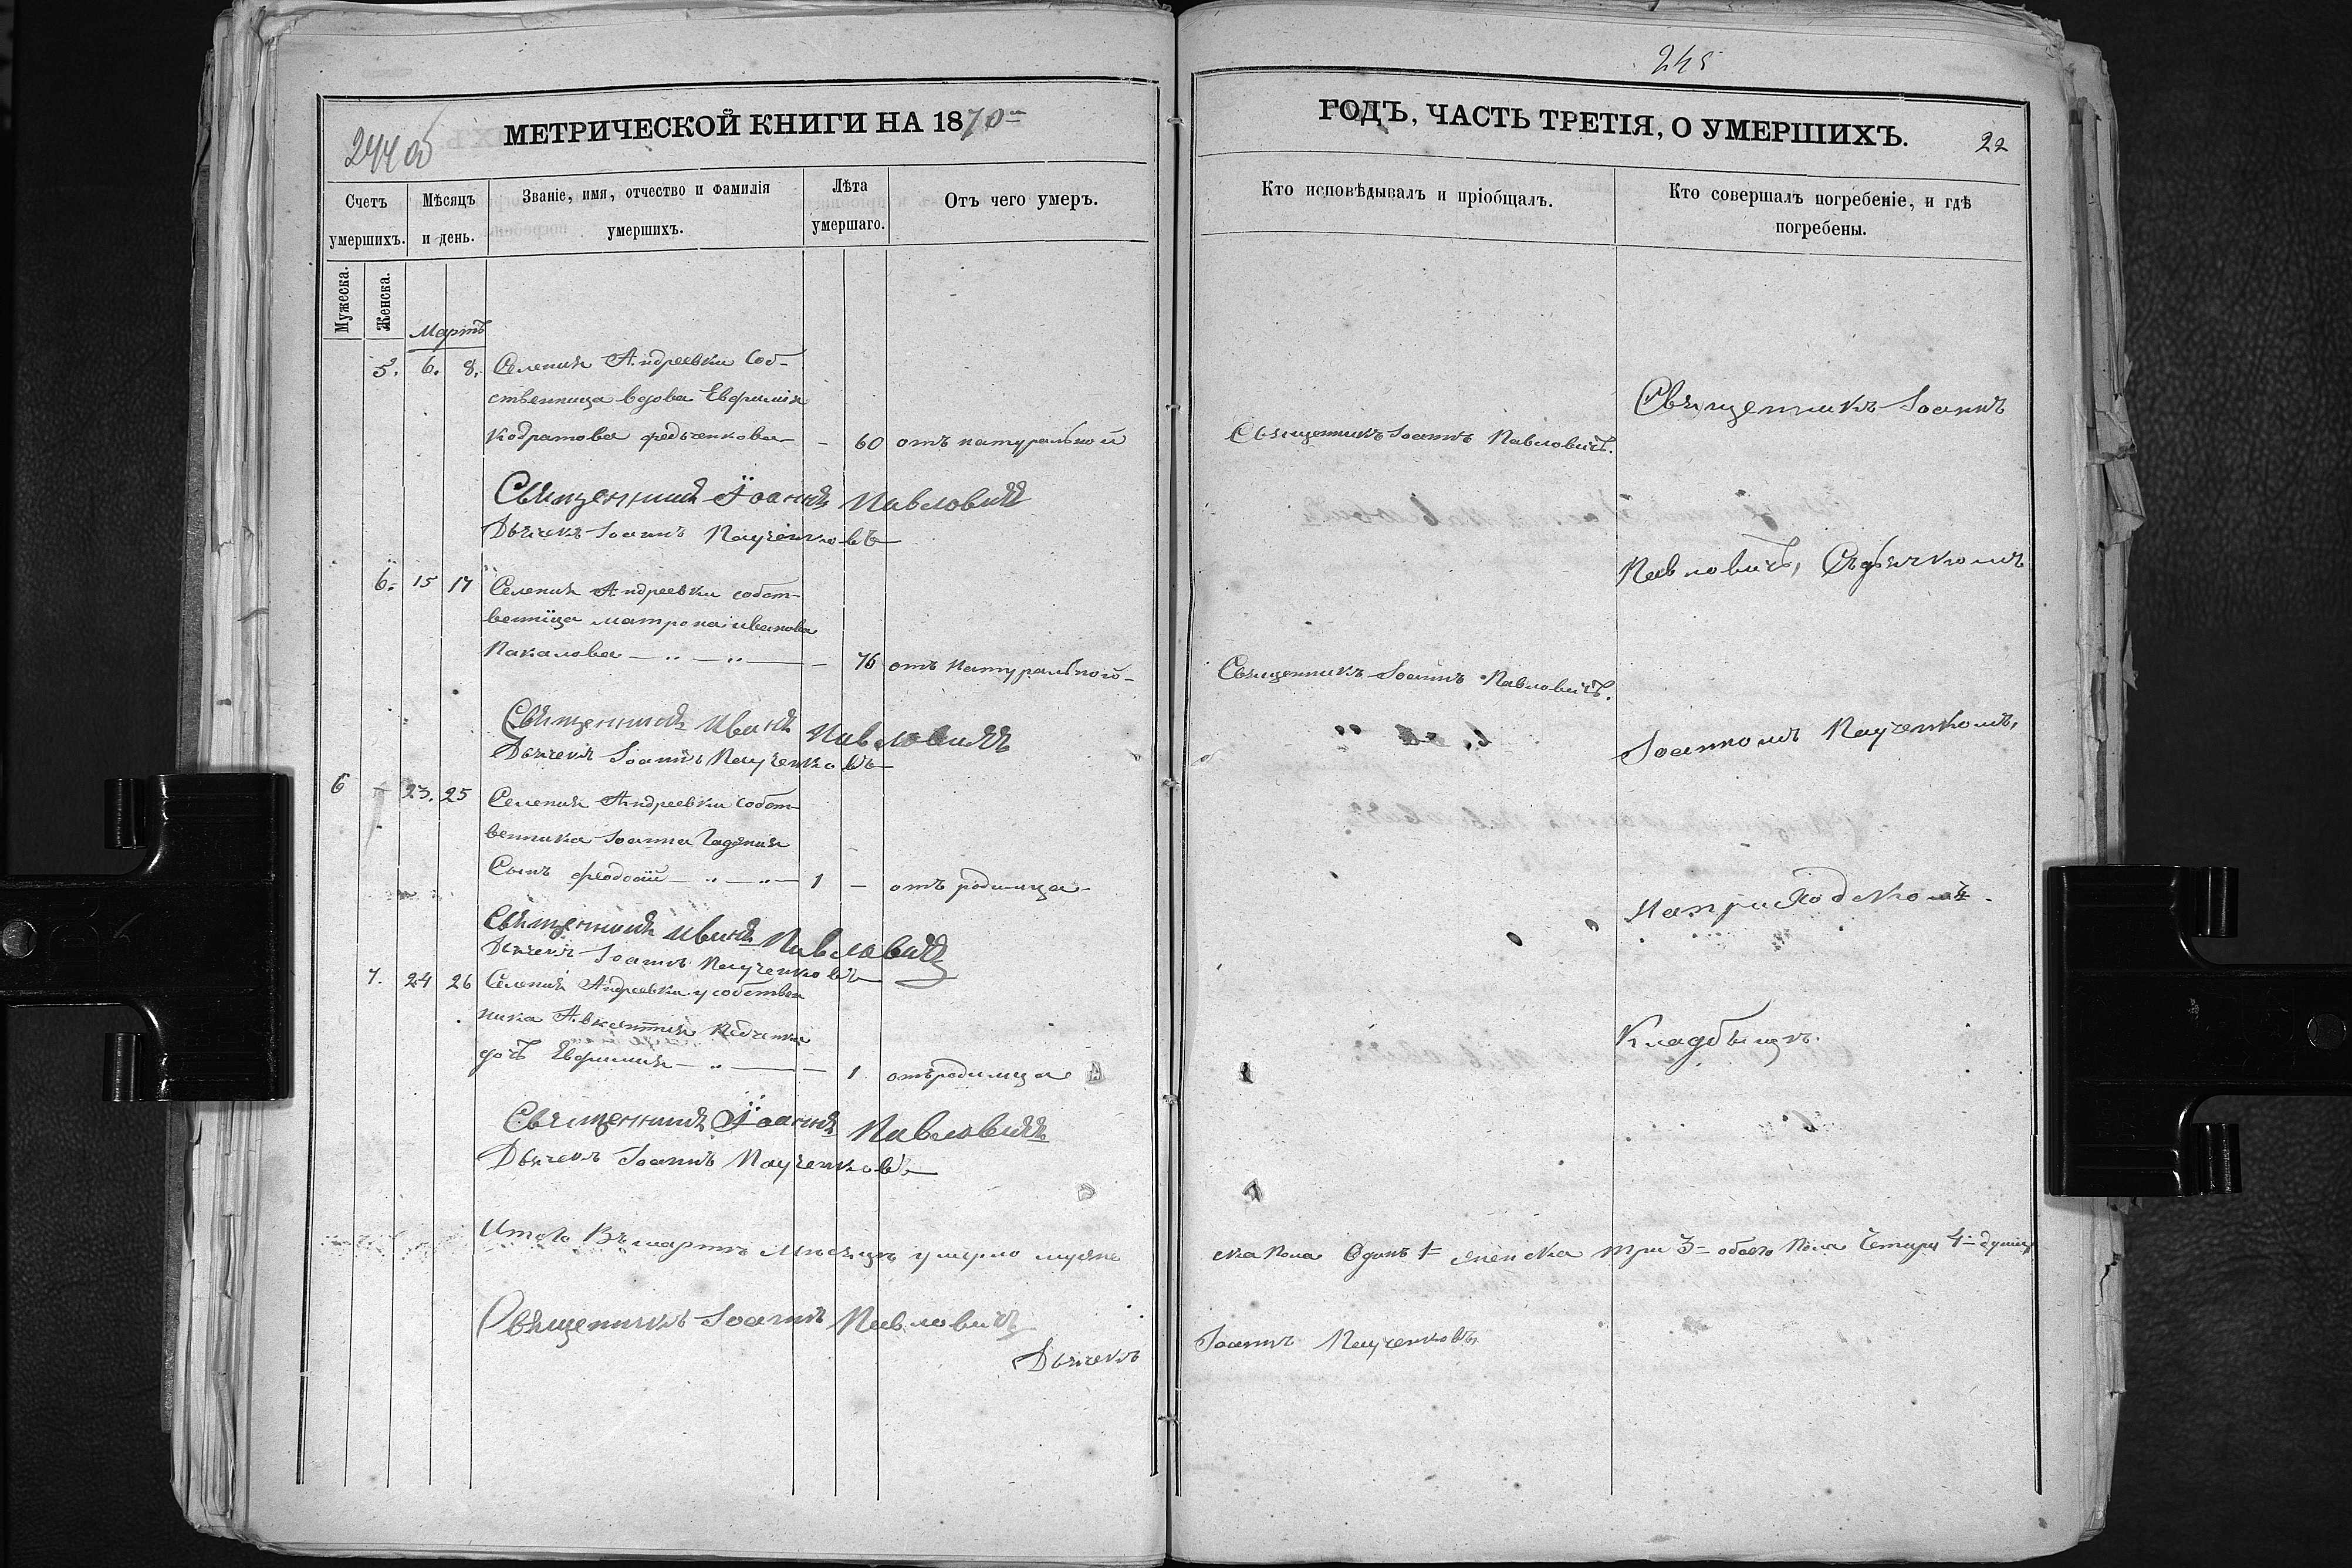 244 об
МЕТРИЧЕСКОЙ КНИГИ НА 1870
Счетъ умершихъ.
Мѣсяцъ и день.
Званіе, имя, отчество и фамилія умершихъ.
Лѣта умершаго.
Отъ чего умеръ.
Мужеска.
Женска.
Мартъ
5. 6. 8. Селенія Андреевки соб-
ственница вдова Евфимія
Кодратова Федченкова — 60 отъ натуральной
Священникъ Іоаннъ Павловичъ
Дьячекъ Іоаннъ Паученковъ
6. 15 17 Селенія Андреевки собст-
венница Матрона Иванова
Пакалова — 76 отъ натуральной
Священникъ Иванъ Павловичъ
Дьячекъ Іоаннъ Паученковъ
6 — 23. 25 Селенія Андреевки собст-
венника Іоанна
Сынъ Феодосій — 1 — отъ родимца
Священникъ Иванъ Павловичъ
Дьячекъ Іоаннъ Паученковъ
7. 24 26 Селенія Андреевки у собствен
ника Авксентия
дочь Евфимия — 1 отъ родимца
Священникъ Іоаннъ Павловичъ
Дьячекъ Іоаннъ Паученковъ
Итого Въ мартѣ Мѣсяцѣ умерло муже
Священникъ Іоаннъ Павловичъ
Дьячекъ
245
ГОДЪ, ЧАСТЬ ТРЕТІЯ, О УМЕРШИХЪ.
22
Кто исповѣдывалъ и пріобщалъ.
Кто совершалъ погребеніе, и гдѣ погребены.
Священникъ Іоаннъ
Священникъ Іоаннъ Павловичъ.
Павловичъ, Съ дьячкомъ
Священникъ Іоаннъ Павловичъ.
Іоанномъ Паученкомъ,
На приходскомъ
Кладбыщѣ.
ска пола Одинъ 1 женска три 3 обоего пола Четыри 4 души
Іоаннъ Паученковъ